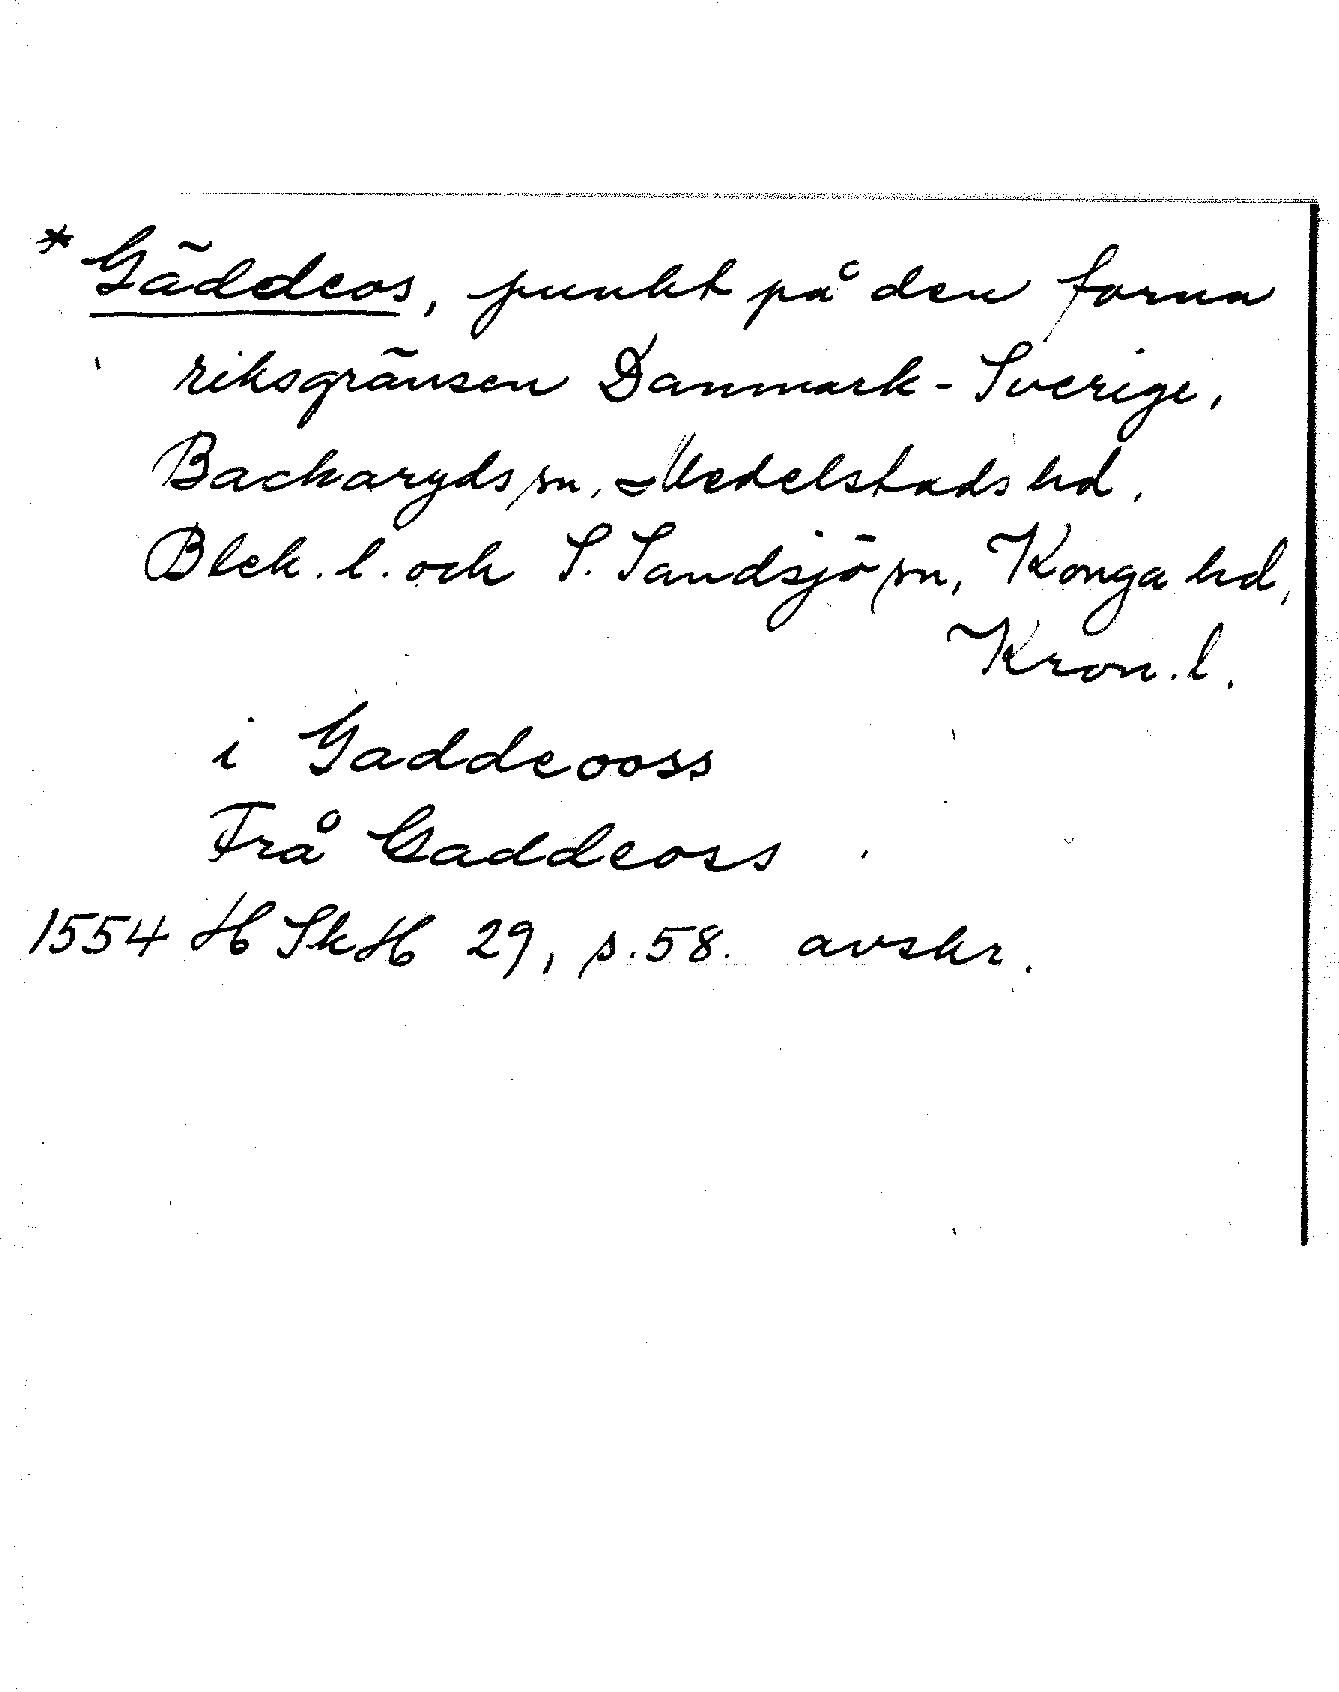 * Gäddeos, punkt på den forna
riksgränsen Danmark - Sverige,
Backaryds sn, Medelstads hd,
Blek. l. och S. Sandsjö sn, Konga hd,
Kron. l.
i Gaddeooss
Frå Gaddeoss
1554 HSkH 29, s. 58. avskr.